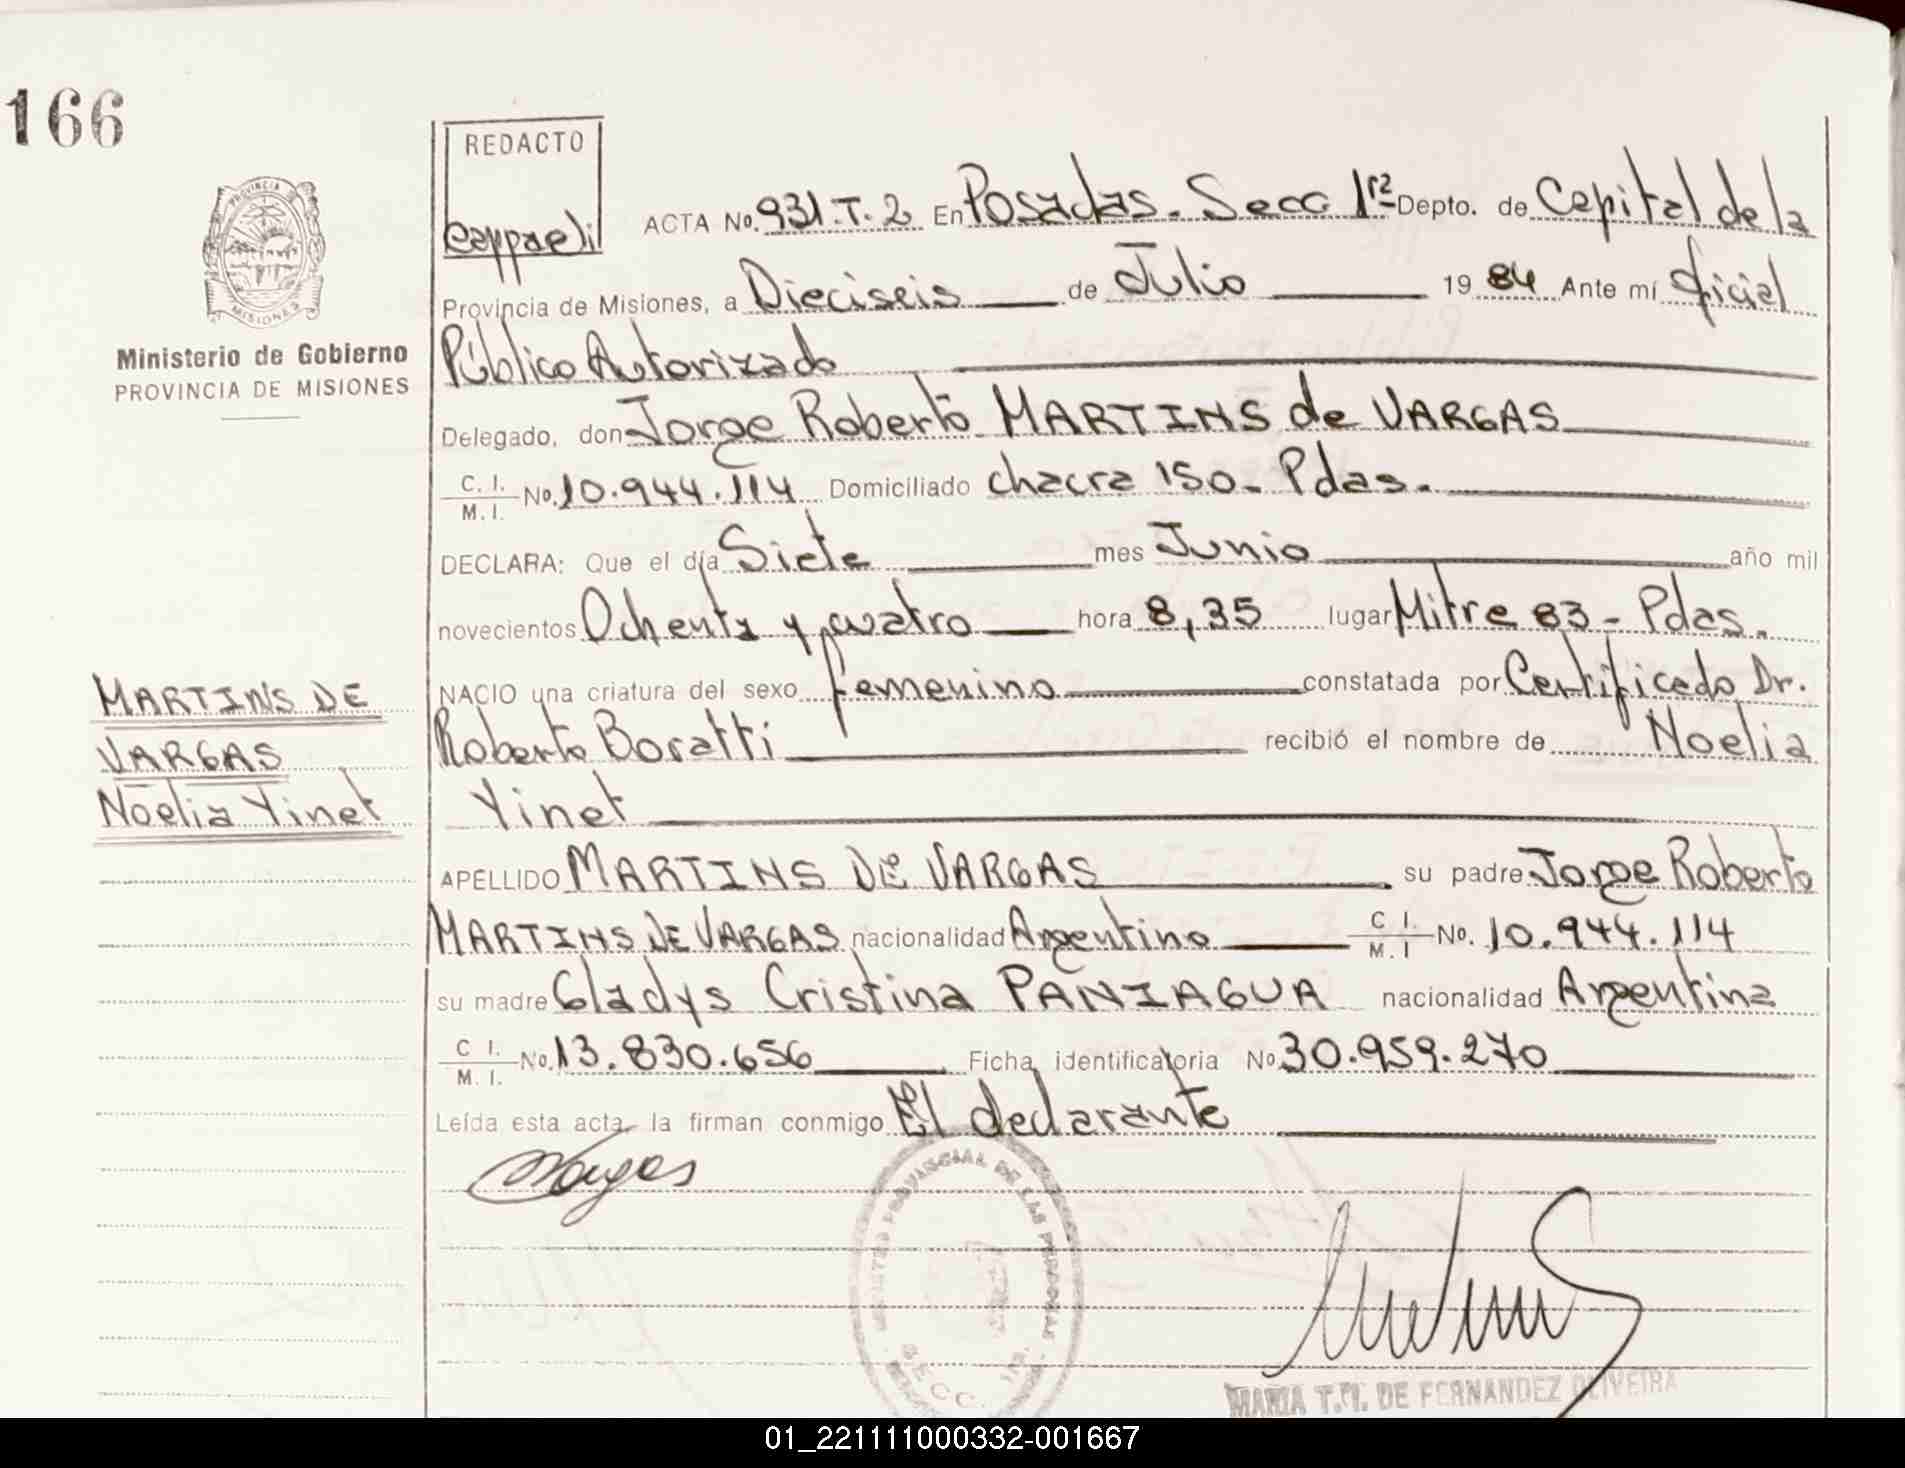 166
REDACTO
ACTA No. 931.T.2 En Posadas. Secc 1ra Depto. de Capital de la
Provincia de Misiones, a Dieciseis de Julio 1984 Ante mí Oficial
Público Autorizado
Delegado, don Jorge Roberto MARTINS de VARGAS
C. I.
M. I. No. 10.944.114 Domiciliado chacra 150 - Pdas.
DECLARA: Que el día Siete mes Junio año mil
novecientos Ochenta y cuatro hora 8,35 lugar Mitre 83 - Pdas.
NACIO una criatura del sexo femenino constatada por Certificado Dr.
Roberto Boratti recibió el nombre de Noelia
Yinet
APELLIDO MARTINS DE VARGAS su padre Jorge Roberto
MARTINS DE VARGAS nacionalidad Argentino C I.
M. I No. 10.944.114
su madre Gladys Cristina PANIAGUA nacionalidad Argentina
C I.
M. I. No. 13.830.656 Ficha identificatoria No 30.959.270
Leída esta acta, la firman conmigo El declarante
PROVINCIA DE
MISIONES
Ministerio de Gobierno
PROVINCIA DE MISIONES
MARTINS DE
VARGAS
Noelia Yinet
Vargas
PROVINCIAL DE LAS PERSONAS
SECC. 1ra.
MARIA T. M. DE FERNANDEZ OLIVEIRA
01_221111000332-001667